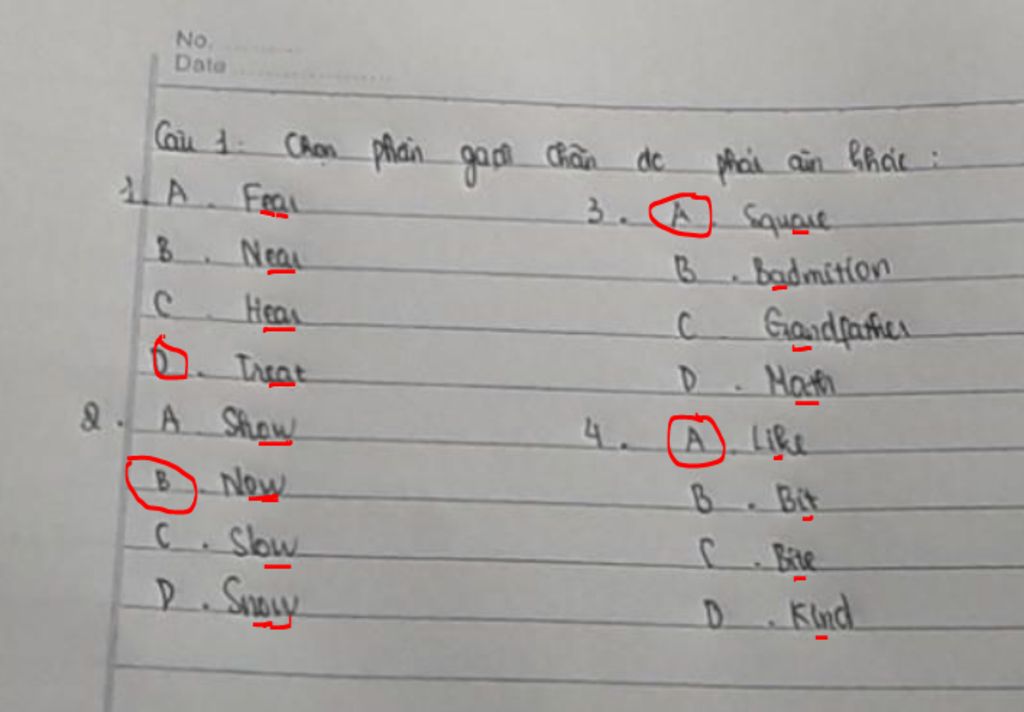 No. ..........
Date ....................
Câu 1: Chọn phần gạch chân đc phát âm khác:
1. A. Fear
B. Near
C. Hear
D. Treat
2. A. Show
B. Now
C. Slow
D. Snow
3. A. Square
B. Badmition
C. Grandfather
D. Math
4. A. Like
B. Bit
C. Bite
D. Kind